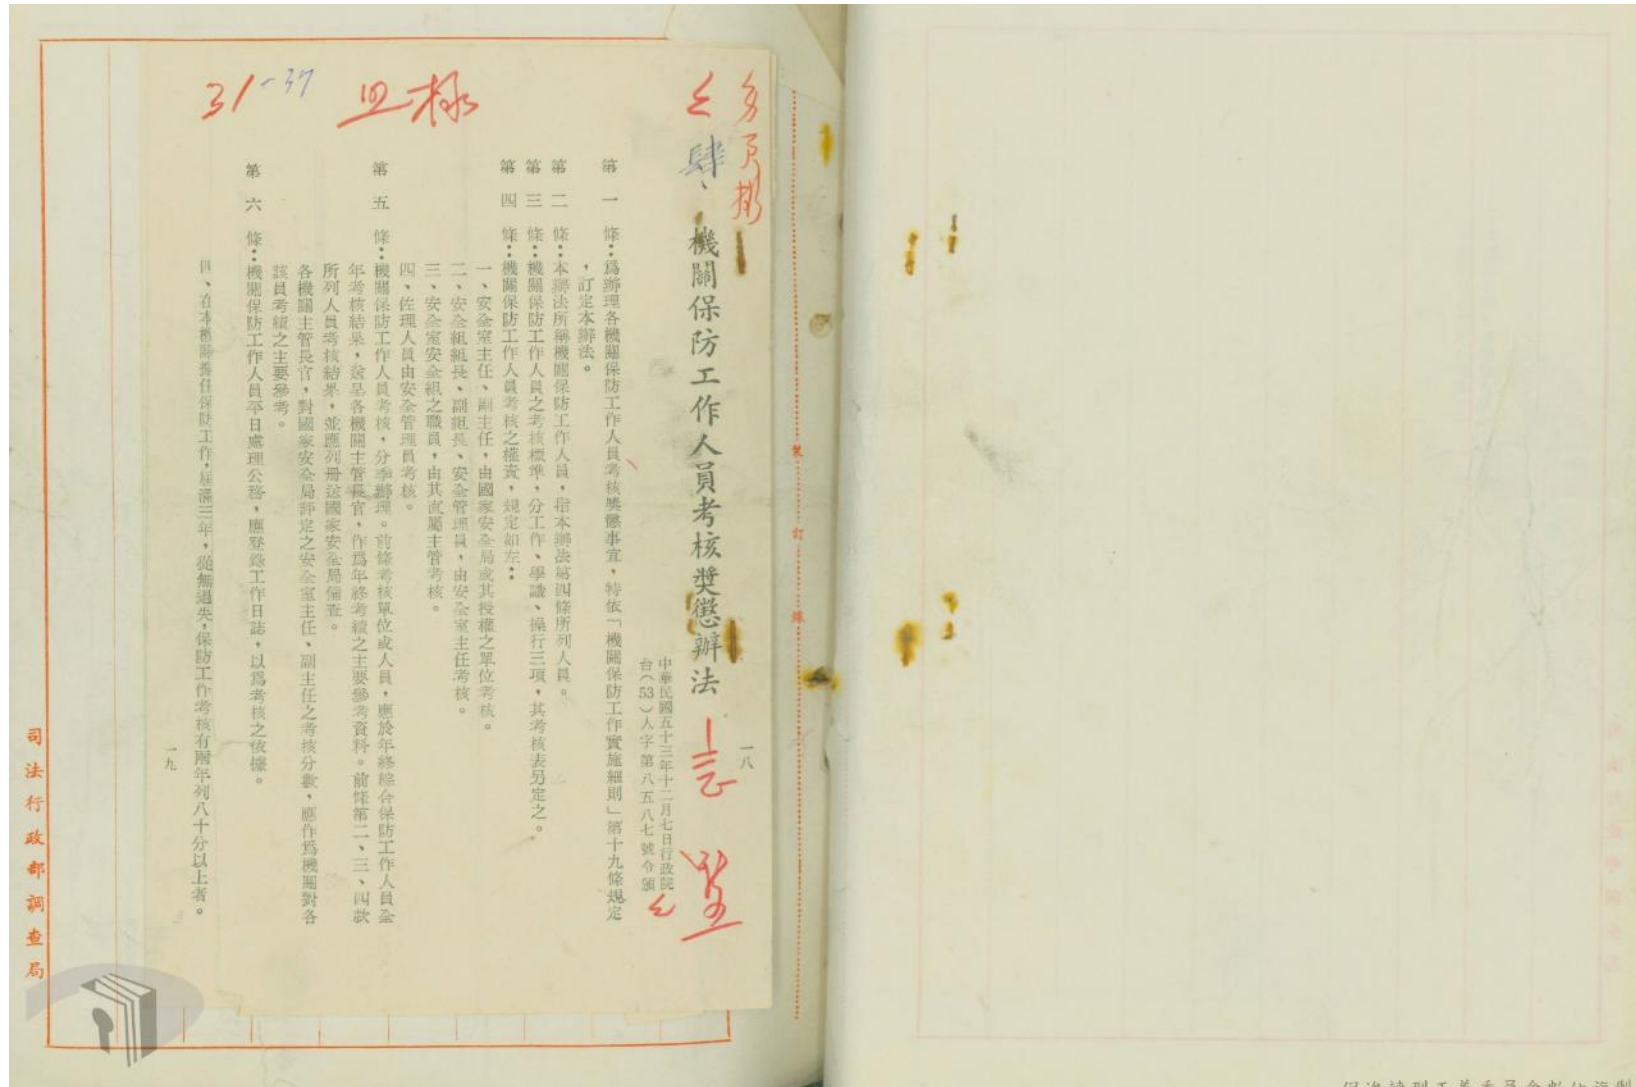 31-37
肆、機關保防工作人員考核獎懲辦法
中華民國五十三年十二月七日行政院
台(53)人字第八五八七號令頒
一八
第一條：為辦理各機關保防工作人員考核獎懲事宜，特依「機關保防工作實施細則」第十九條規定
，訂定本辦法。
第二條：本辦法所稱機關保防工作人員，指本辦法第四條所列人員。
第三條：機關保防工作人員之考核標準，分工作、學識、操行三項，其考核表另定之。
第四條：機關保防工作人員考核之權責，規定如左：
一、安全室主任、副主任，由國家安全局或其授權之單位考核。
二、安全組組長、副組長、安全管理員，由安全室主任考核。
三、安全室安全組之職員，由其直屬主管考核。
四、佐理人員由安全管理員考核。
第五條：機關保防工作人員考核，分季辦理。前條考核單位或人員，應於年終綜合保防工作人員全
年考核結果，送呈各機關主管長官，作為年終考績之主要參考資料。前條第二、三、四款
所列人員考核結果，並應列冊送國家安全局備查。
各機關主管長官，對國家安全局評定之安全室主任、副主任之考核分數，應作為機關對各
該員考績之主要參考。
第六條：機關保防工作人員平日處理公務，應登錄工作日誌，以為考核之依據。
四、在本機關擔任保防工作，屆滿三年，從無過失，保防工作考核有兩年列八十分以上者。
一九
裝訂線
司法行政部調查局